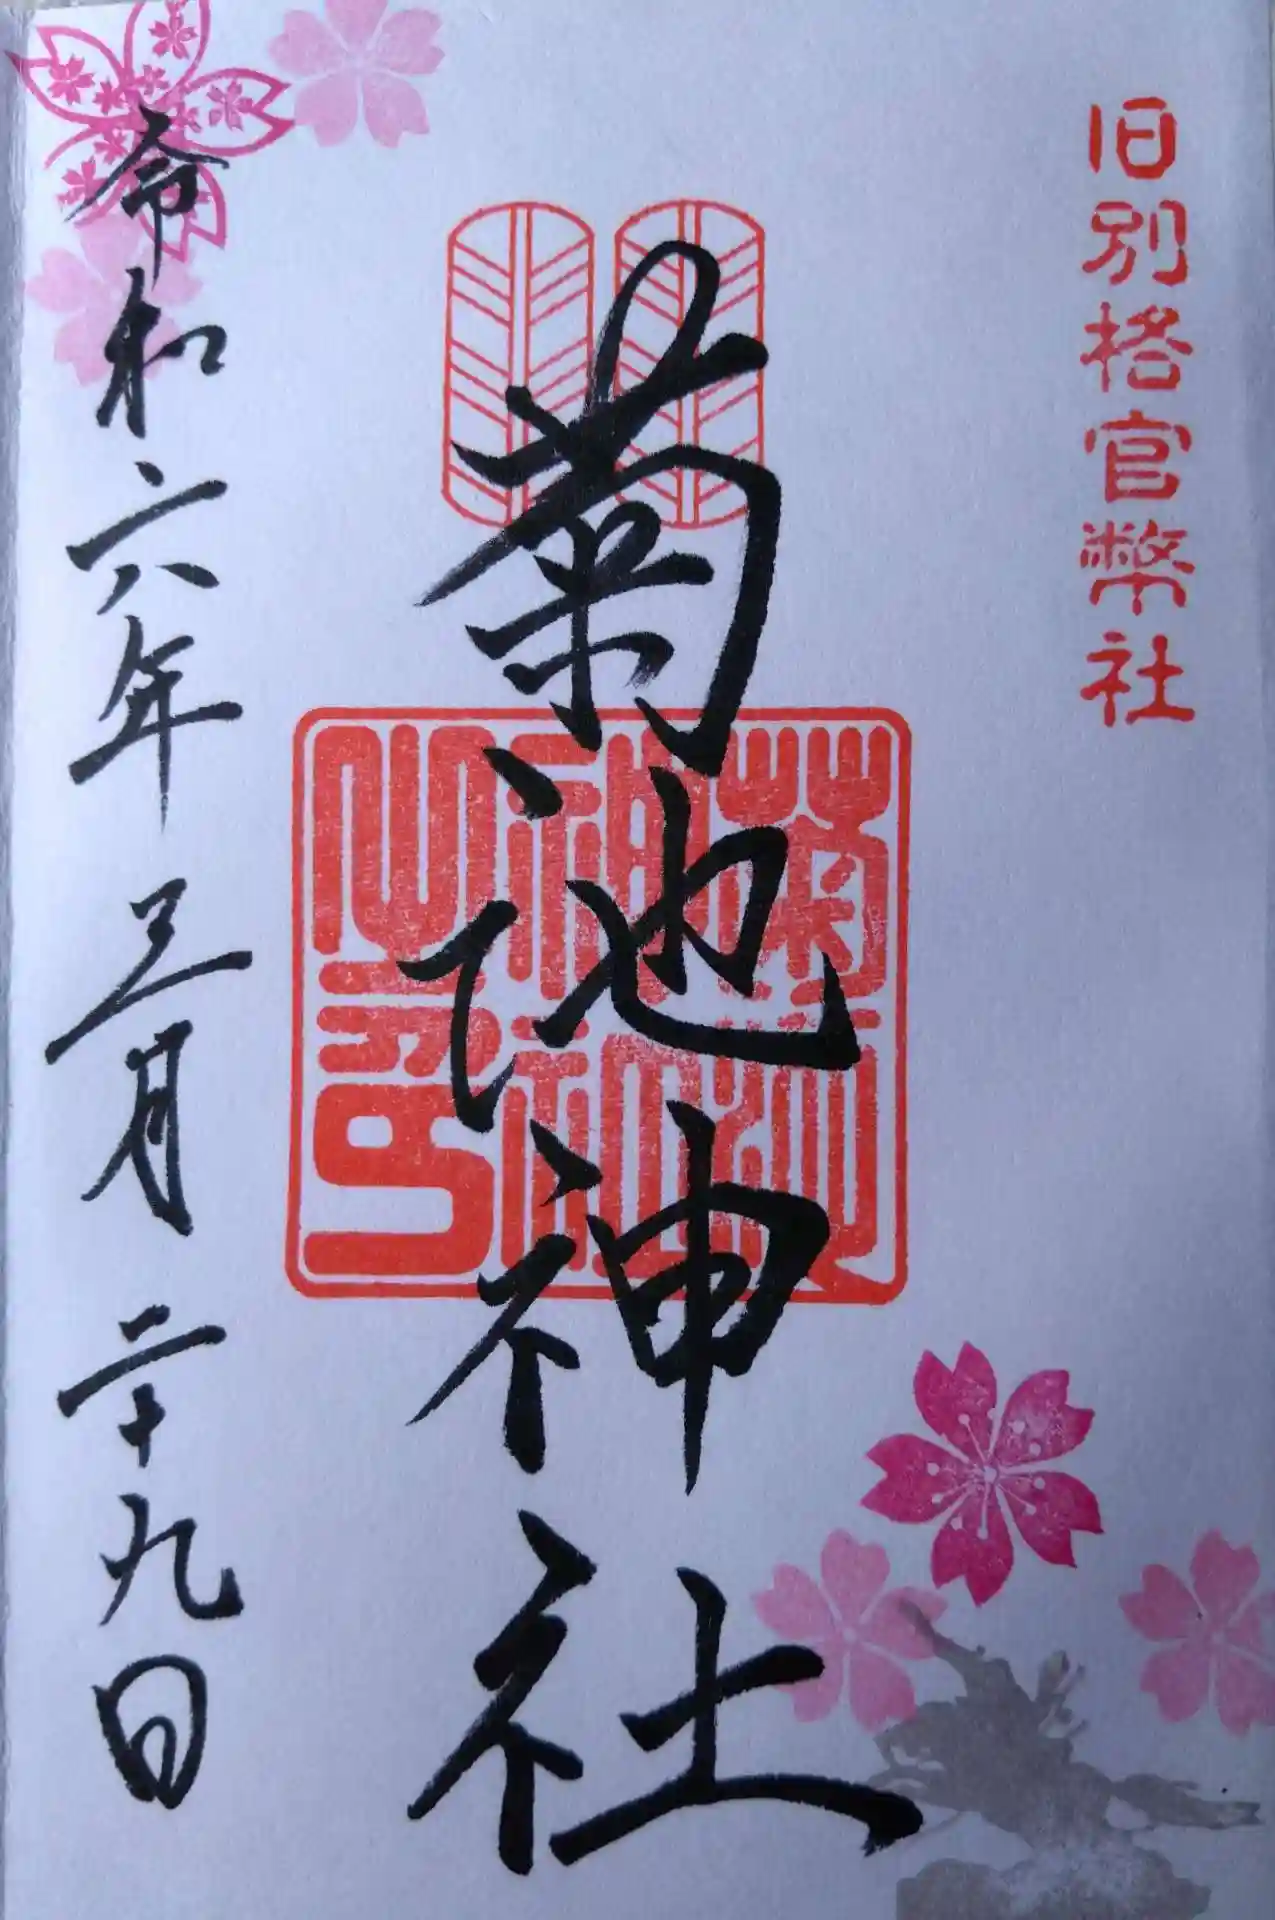 旧別格官幣社
菊池神社
菊池神社之印
令和六年三月二十九日